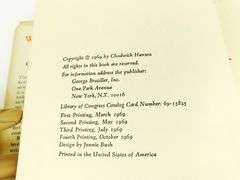 Copyright © 1969 by Chadwick Hansen
All rights in this book are reserved.
For information address the publisher:
George Braziller, Inc.
One Park Avenue
New York, N.Y. 10016
Library of Congress Catalog Card Number: 69-15825
First Printing, March 1969
Second Printing, May 1969
Third Printing, July 1969
Fourth Printing, October 1969
Design by Jennie Bush
Printed in the United States of America